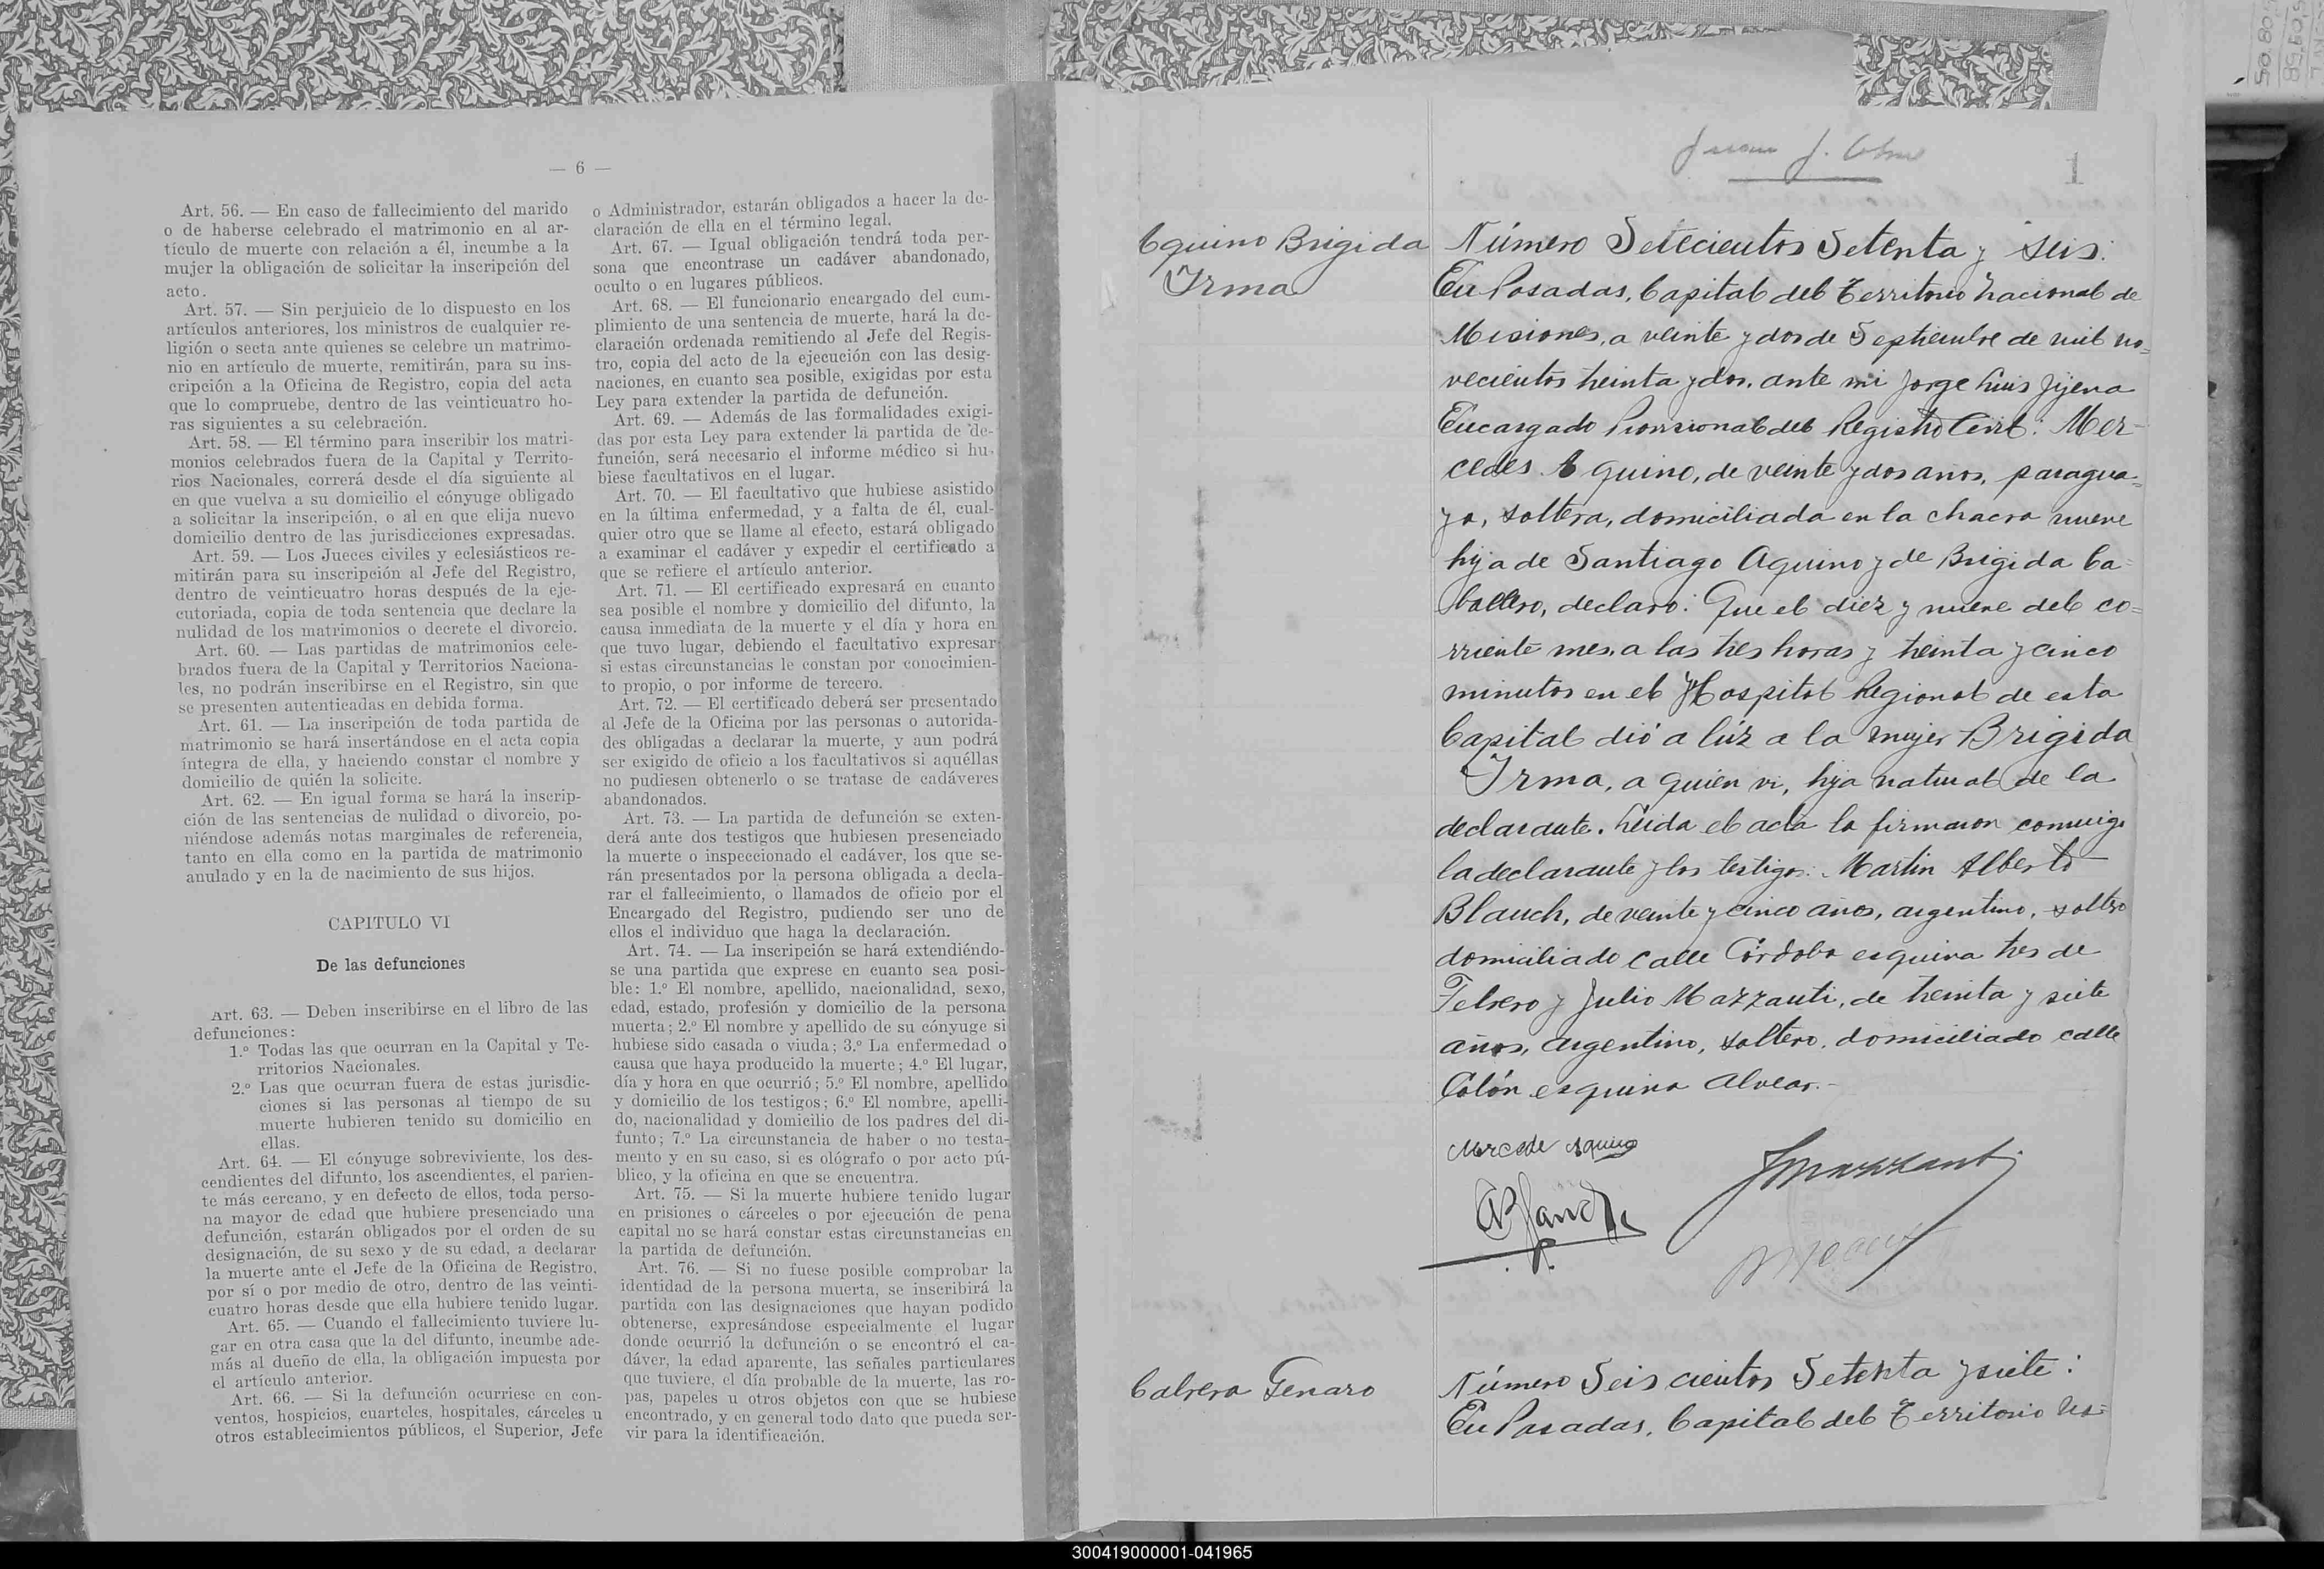 — 6 —
Art. 56. — En caso de fallecimiento del marido
o de haberse celebrado el matrimonio en al ar-
tículo de muerte con relación a él, incumbe a la
mujer la obligación de solicitar la inscripción del
acto.
Art. 57. — Sin perjuicio de lo dispuesto en los
artículos anteriores, los ministros de cualquier re-
ligión o secta ante quienes se celebre un matrimo-
nio en artículo de muerte, remitirán, para su ins-
cripción a la Oficina de Registro, copia del acta
que lo compruebe, dentro de las veinticuatro ho-
ras siguientes a su celebración.
Art. 58. — El término para inscribir los matri-
monios celebrados fuera de la Capital y Territo-
rios Nacionales, correrá desde el día siguiente al
en que vuelva a su domicilio el cónyuge obligado
a solicitar la inscripción, o al en que elija nuevo
domicilio dentro de las jurisdicciones expresadas.
Art. 59. — Los Jueces civiles y eclesiásticos re-
mitirán para su inscripción al Jefe del Registro,
dentro de veinticuatro horas después de la eje-
cutoriada, copia de toda sentencia que declare la
nulidad de los matrimonios o decrete el divorcio.
Art. 60. — Las partidas de matrimonios cele-
brados fuera de la Capital y Territorios Naciona-
les, no podrán inscribirse en el Registro, sin que
se presenten autenticadas en debida forma.
Art. 61. — La inscripción de toda partida de
matrimonio se hará insertándose en el acta copia
íntegra de ella, y haciendo constar el nombre y
domicilio de quién la solicite.
Art. 62. — En igual forma se hará la inscrip-
ción de las sentencias de nulidad o divorcio, po-
niéndose además notas marginales de referencia,
tanto en ella como en la partida de matrimonio
anulado y en la de nacimiento de sus hijos.
CAPITULO VI
De las defunciones
Art. 63. — Deben inscribirse en el libro de las
defunciones:
1.º Todas las que ocurran en la Capital y Te-
rritorios Nacionales.
2.º Las que ocurran fuera de estas jurisdic-
ciones si las personas al tiempo de su
muerte hubieren tenido su domicilio en
ellas.
Art. 64. — El cónyuge sobreviviente, los des-
cendientes del difunto, los ascendientes, el parien-
te más cercano, y en defecto de ellos, toda perso-
na mayor de edad que hubiere presenciado una
defunción, estarán obligados por el orden de su
designación, de su sexo y de su edad, a declarar
la muerte ante el Jefe de la Oficina de Registro,
por sí o por medio de otro, dentro de las veinti-
cuatro horas desde que ella hubiere tenido lugar.
Art. 65. — Cuando el fallecimiento tuviere lu-
gar en otra casa que la del difunto, incumbe ade-
más al dueño de ella, la obligación impuesta por
el artículo anterior.
Art. 66. — Si la defunción ocurriese en con-
ventos, hospicios, cuarteles, hospitales, cárceles u
otros establecimientos públicos, el Superior, Jefe
o Administrador, estarán obligados a hacer la de-
claración de ella en el término legal.
Art. 67. — Igual obligación tendrá toda per-
sona que encontrase un cadáver abandonado,
oculto o en lugares públicos.
Art. 68. — El funcionario encargado del cum-
plimiento de una sentencia de muerte, hará la de-
claración ordenada remitiendo al Jefe del Regis-
tro, copia del acto de la ejecución con las desig-
naciones, en cuanto sea posible, exigidas por esta
Ley para extender la partida de defunción.
Art. 69. — Además de las formalidades exigi-
das por esta Ley para extender la partida de de-
función, será necesario el informe médico si hu-
biese facultativos en el lugar.
Art. 70. — El facultativo que hubiese asistido
en la última enfermedad, y a falta de él, cual-
quier otro que se llame al efecto, estará obligado
a examinar el cadáver y expedir el certificado a
que se refiere el artículo anterior.
Art. 71. — El certificado expresará en cuanto
sea posible el nombre y domicilio del difunto, la
causa inmediata de la muerte y el día y hora en
que tuvo lugar, debiendo el facultativo expresar
si estas circunstancias le constan por conocimien-
to propio, o por informe de tercero.
Art. 72. — El certificado deberá ser presentado
al Jefe de la Oficina por las personas o autorida-
des obligadas a declarar la muerte, y aun podrá
ser exigido de oficio a los facultativos si aquéllas
no pudiesen obtenerlo o se tratase de cadáveres
abandonados.
Art. 73. — La partida de defunción se exten-
derá ante dos testigos que hubiesen presenciado
la muerte o inspeccionado el cadáver, los que se-
rán presentados por la persona obligada a decla-
rar el fallecimiento, o llamados de oficio por el
Encargado del Registro, pudiendo ser uno de
ellos el individuo que haga la declaración.
Art. 74. — La inscripción se hará extendiéndo-
se una partida que exprese en cuanto sea posi-
ble: 1.º El nombre, apellido, nacionalidad, sexo,
edad, estado, profesión y domicilio de la persona
muerta; 2.º El nombre y apellido de su cónyuge si
hubiese sido casada o viuda; 3.º La enfermedad o
causa que haya producido la muerte; 4.º El lugar,
día y hora en que ocurrió; 5.º El nombre, apellido
y domicilio de los testigos; 6.º El nombre, apelli-
do, nacionalidad y domicilio de los padres del di-
funto; 7.º La circunstancia de haber o no testa-
mento y en su caso, si es ológrafo o por acto pú-
blico, y la oficina en que se encuentra.
Art. 75. — Si la muerte hubiere tenido lugar
en prisiones o cárceles o por ejecución de pena
capital no se hará constar estas circunstancias en
la partida de defunción.
Art. 76. — Si no fuese posible comprobar la
identidad de la persona muerta, se inscribirá la
partida con las designaciones que hayan podido
obtenerse, expresándose especialmente el lugar
donde ocurrió la defunción o se encontró el ca-
dáver, la edad aparente, las señales particulares
que tuviere, el día probable de la muerte, las ro-
pas, papeles u otros objetos con que se hubiese
encontrado, y en general todo dato que pueda ser-
vir para la identificación.
Juan J.
1
Aquino Brigida
Irma
Número Setecientos Setenta y seis:
En Posadas, Capital del Territorio Nacional de
Misiones, a veinte y dos de Septiembre de mil no=
vecientos treinta y dos, ante mi Jorge Luis Jijena
Encargado Provisional del Registro Civil: Mer-
cedes Aquino, de veinte y dos años, paragua=
ya, soltera, domiciliada en la chacra nueve
hija de Santiago Aquino y de Brigida Ca=
ballero, declaro: Que el diez y nueve del co=
rriente mes, a las tres horas y treinta y cinco
minutos en el Hospital Regional de esta
Capital dió a lúz a la mujer Brigida
Irma, a quien vi, hija natural de la
declarante. Leida el acta la firmaron conmigo
la declarante y los testigos: Martin Alberto
Blanch, de veinte y cinco años, argentino, soltero
domiciliado calle Córdoba esquina tres de
Febrero y Julio Mazzanti, de treinta y siete
años, argentino, soltero, domiciliado calle
Colón esquina Alvear.-
Mercede Aquino
JMazzanti
ABlanch
Cabrera Genaro
Número Seis cientos Setenta y siete:
En Posadas, Capital del Territorio Na=
300419000001-041965